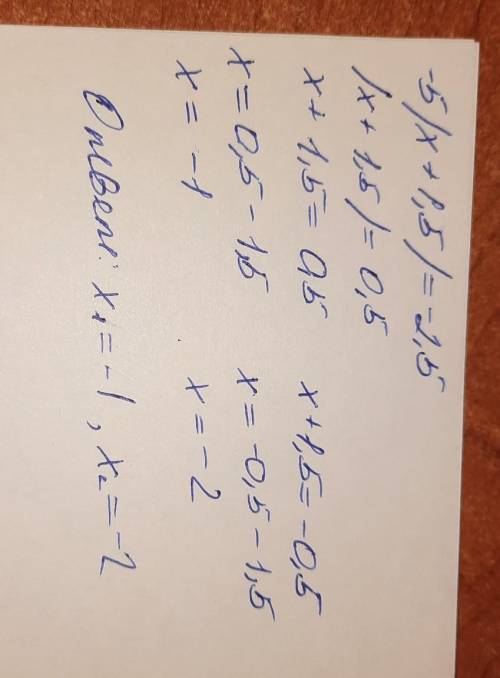 -5|x+1,5|=-2,5
|x+1,5|=0,5
x+1,5=0,5 x+1,5=-0,5
x=0,5-1,5 x=-0,5-1,5
x=-1 x=-2
Ответ: x₁=-1, x₂=-2